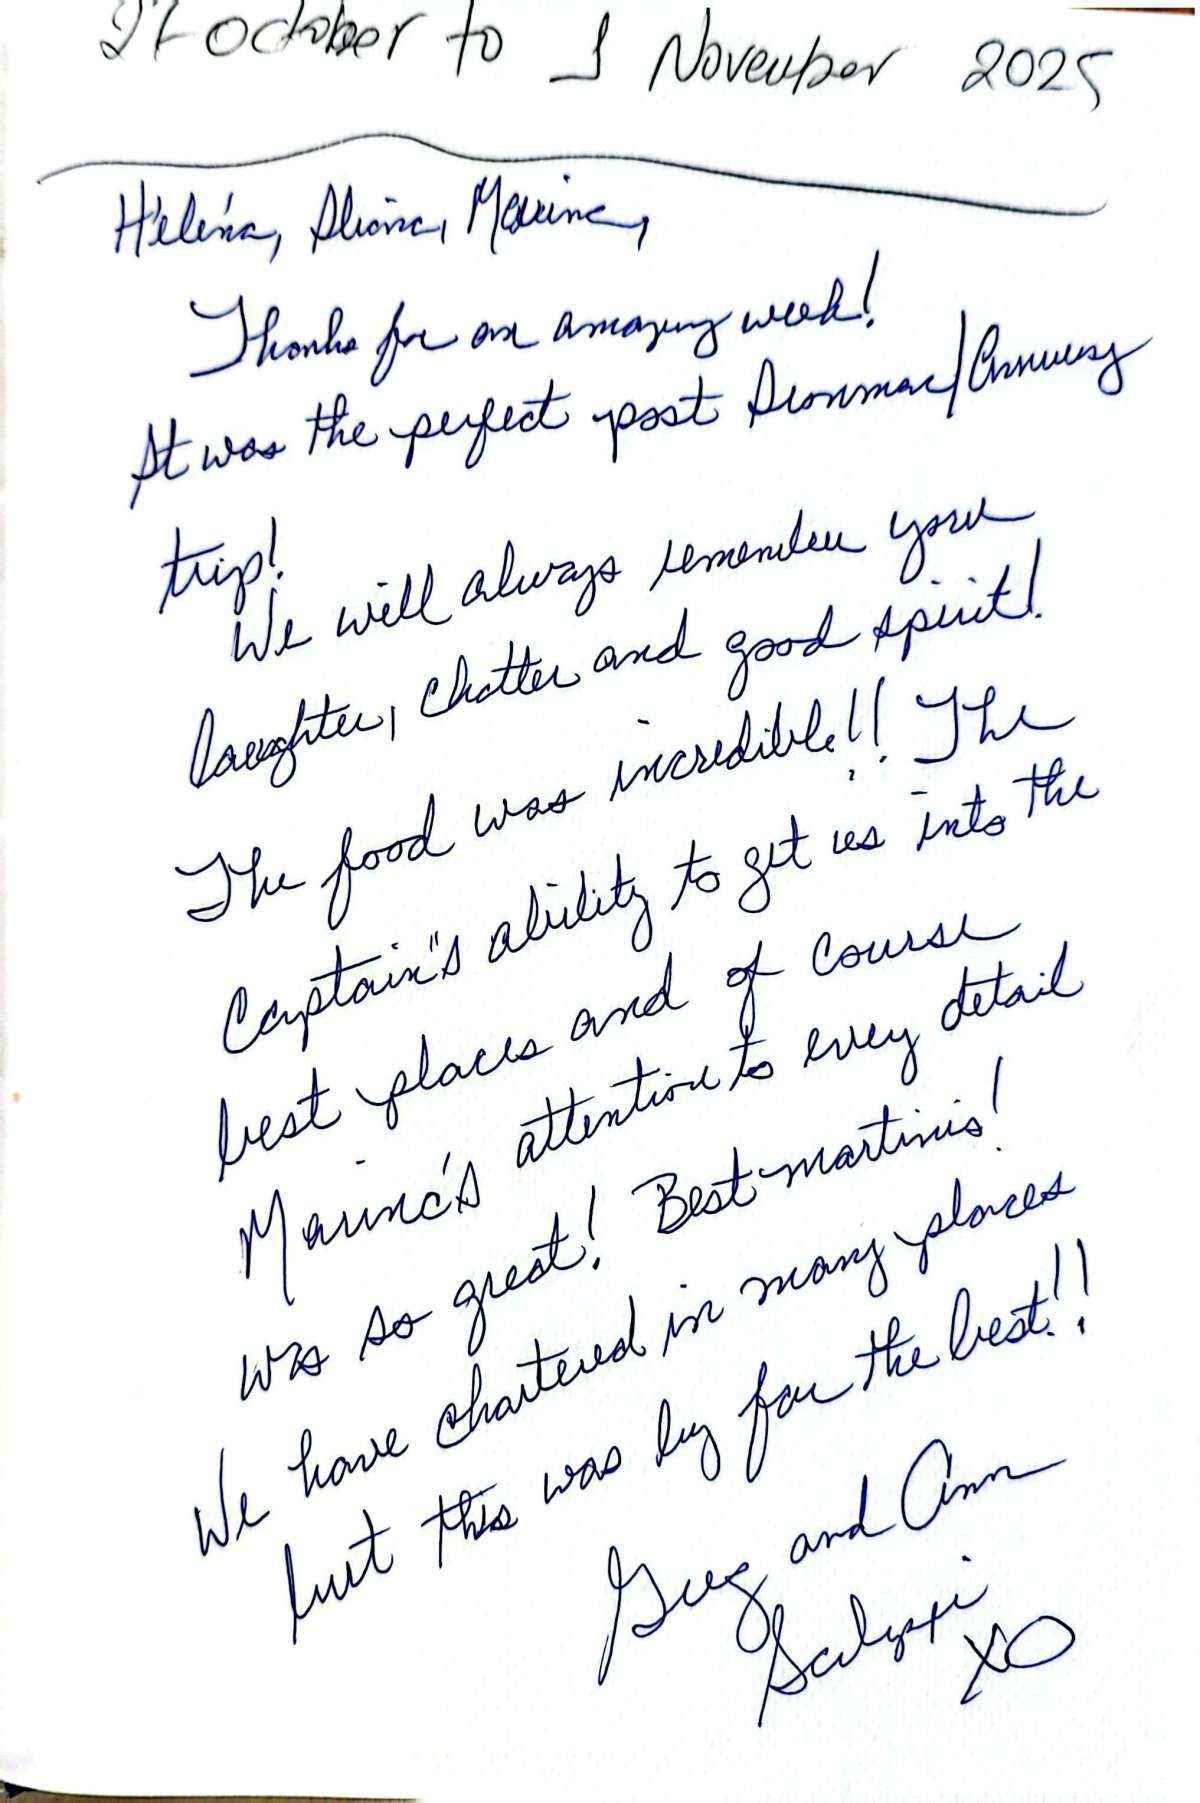 27 October to 1 November 2025
Héléna, Aliona, Marine,
Thanks for an amazing week!
It was the perfect post
trip!
We will always remember your
laughter, chatter and good spirit!
The food was incredible!! The
Captain"s ability to get us into the
best places and of course
Marine's attention to every detail
was so great! Best martinis!
We have chartered in many places
but this was by far the best!!
Greg and Ann
XO